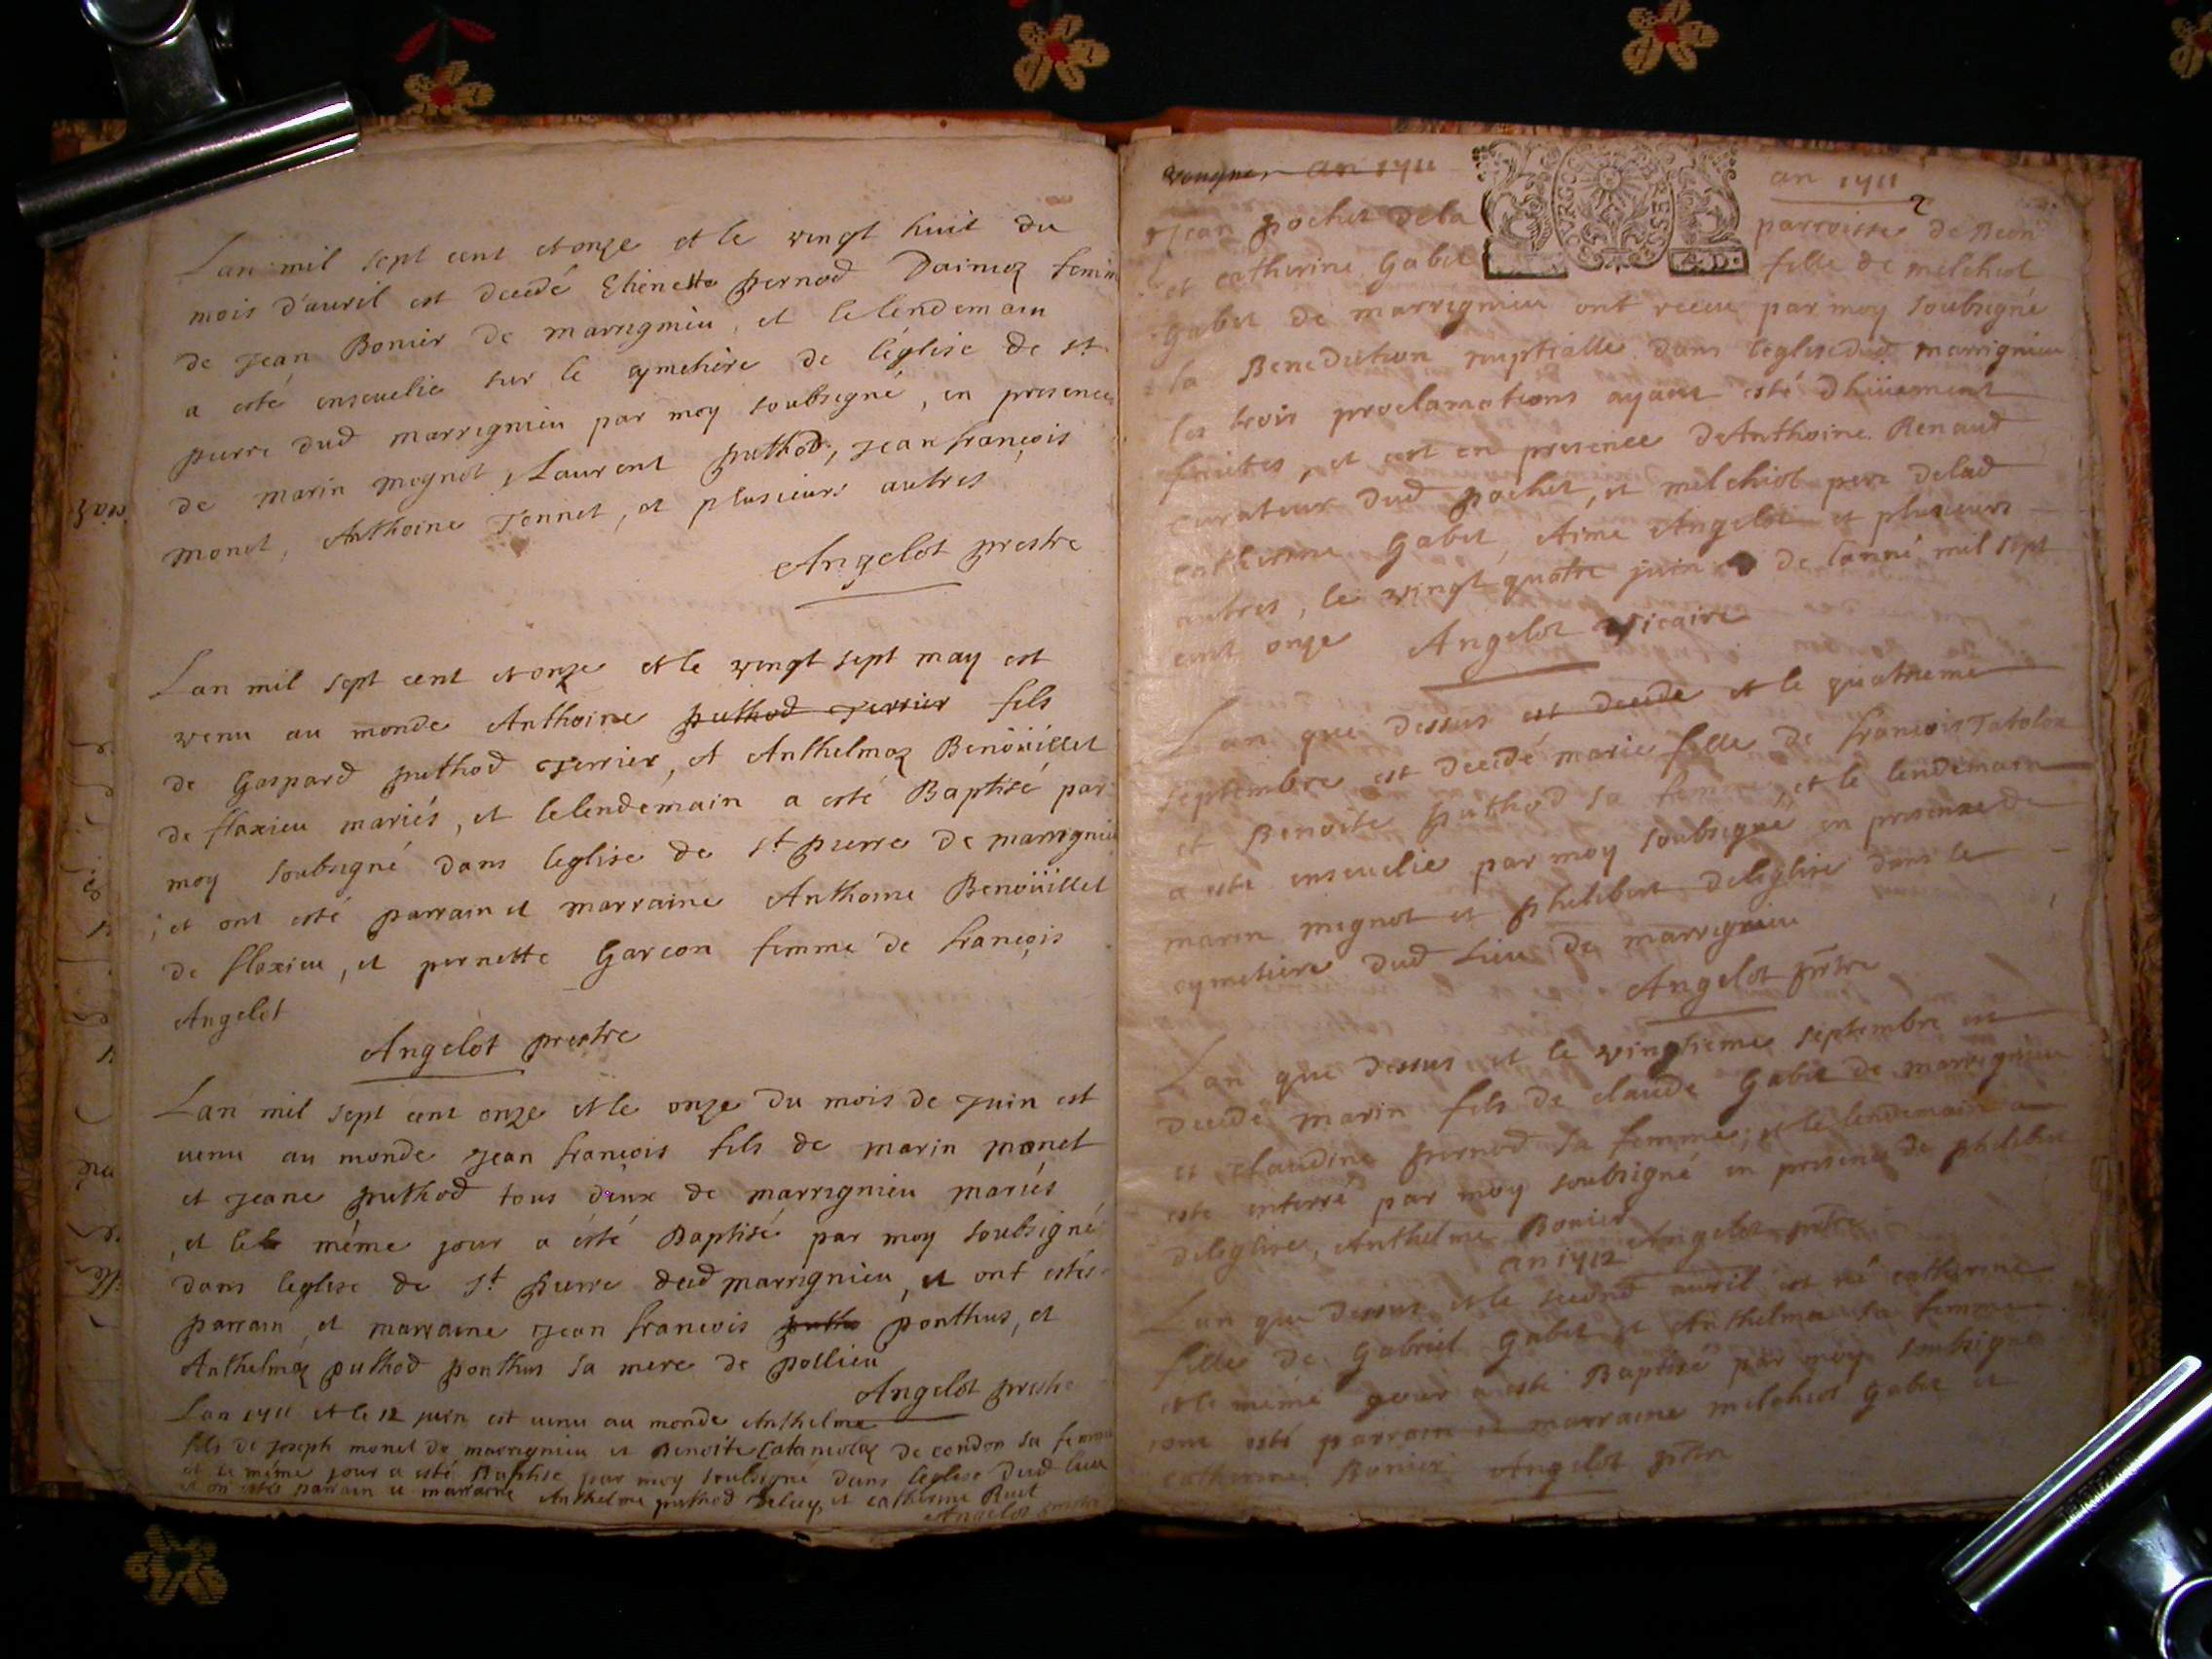 Lan mil sept cent et onze et le vingt huit du
mois d'auril est decedé Etienette pernod Daimoz femme
de Jean Bonier de marrignieu, et le lendemain
a esté enseuelie sur le cymetiere de l'église de st
pierre dud marrignieu par moy soubsigné, en presence
de marin mognot, Laurent puthod, Jean françois
monet, Anthoine Jonnet, et plusieurs autres
Angelot prestre
Lan mil sept cent et onze et le vingt sept may est
venu au monde Anthoine puthod Terrier fils
de Gaspard puthod Terrier, et Anthelmoz Benoüillet
de flaxieu mariés, et le lendemain a esté Baptisé par
moy soubsigné dans leglise de st pierre de marrignieu
; et ont esté parrain et marraine Anthoine Benoüillet
de flaxieu, et pernette Garcon femme de françois
Angelot
Angelot prestre
Lan mil sept cent onze et le onze du mois de Juin est
uenu au monde Jean françois fils de marin monet
et Jeane puthod tous deux de marrignieu mariés
, et le même jour a esté Baptisé par moy soubsigné
dans leglise de st pierre dud marrignieu, et ont estés
parrain, et marraine Jean francois putho ponthus, et
Anthelmoz puthod ponthus sa mere de pollieu
Angelot prestre
Lan 1711 et le 12 juin est uenu au monde Anthelme
fils de Joseph monet de marrignieu et Benoite de condon sa femme
et le même jour a esté Baptisé par moy soubsigné dans leglise dud lieu
et on estés parrain et marraine Anthelme puthod et catherine Buet
Angelot prestre
an 1711
an 1711
2
BOURG BRESSE
G.D.
Jean pochet dela parroisse de Beon
et catherine Gabet fille de melchiot
Gabet de marrignieu ont receu par moy soubsigné
la Benediction nuptialle dans leglise dud marrignieu
les trois proclamations ayant esté dhüement
faites, et cest en presence deAnthoine Renaud
curateur dud pochet, et melchiot pere delad
catherine Gabet, Aime Angelot et plusieurs
autres, le vingt quatre juin de lanné mil sept
cent onze Angelot vicaire
Lan que dessus est decede et le quatrieme
septembre est decedé marie fille de francois
et Benoite puthod sa femme, et le lendemain
a esté enseuelie par moy soubsigné en presence de
marin mignot et philibert deleglise dans le
cymetiere dud Lieu de marrignieu
Angelot prtre
Lan que dessus et le vingtieme septembre est
decedé marin fils de claude Gabet de marrignieu
et claudine pernod sa femme, et le lendemain a
esté enterré par moy soubsigné en presence de philibert
deleglise, Anthelme Bonier Angelot prtre
an 1712
Lan que dessus et le second auril est né catherine
fille de Gabriel Gabet et Anthelma sa femme
et le même jour a esté Baptisé par moy soubsigné
sont esté parrain et marraine melchiot Gabet et
catherine Bonier Angelot prtre